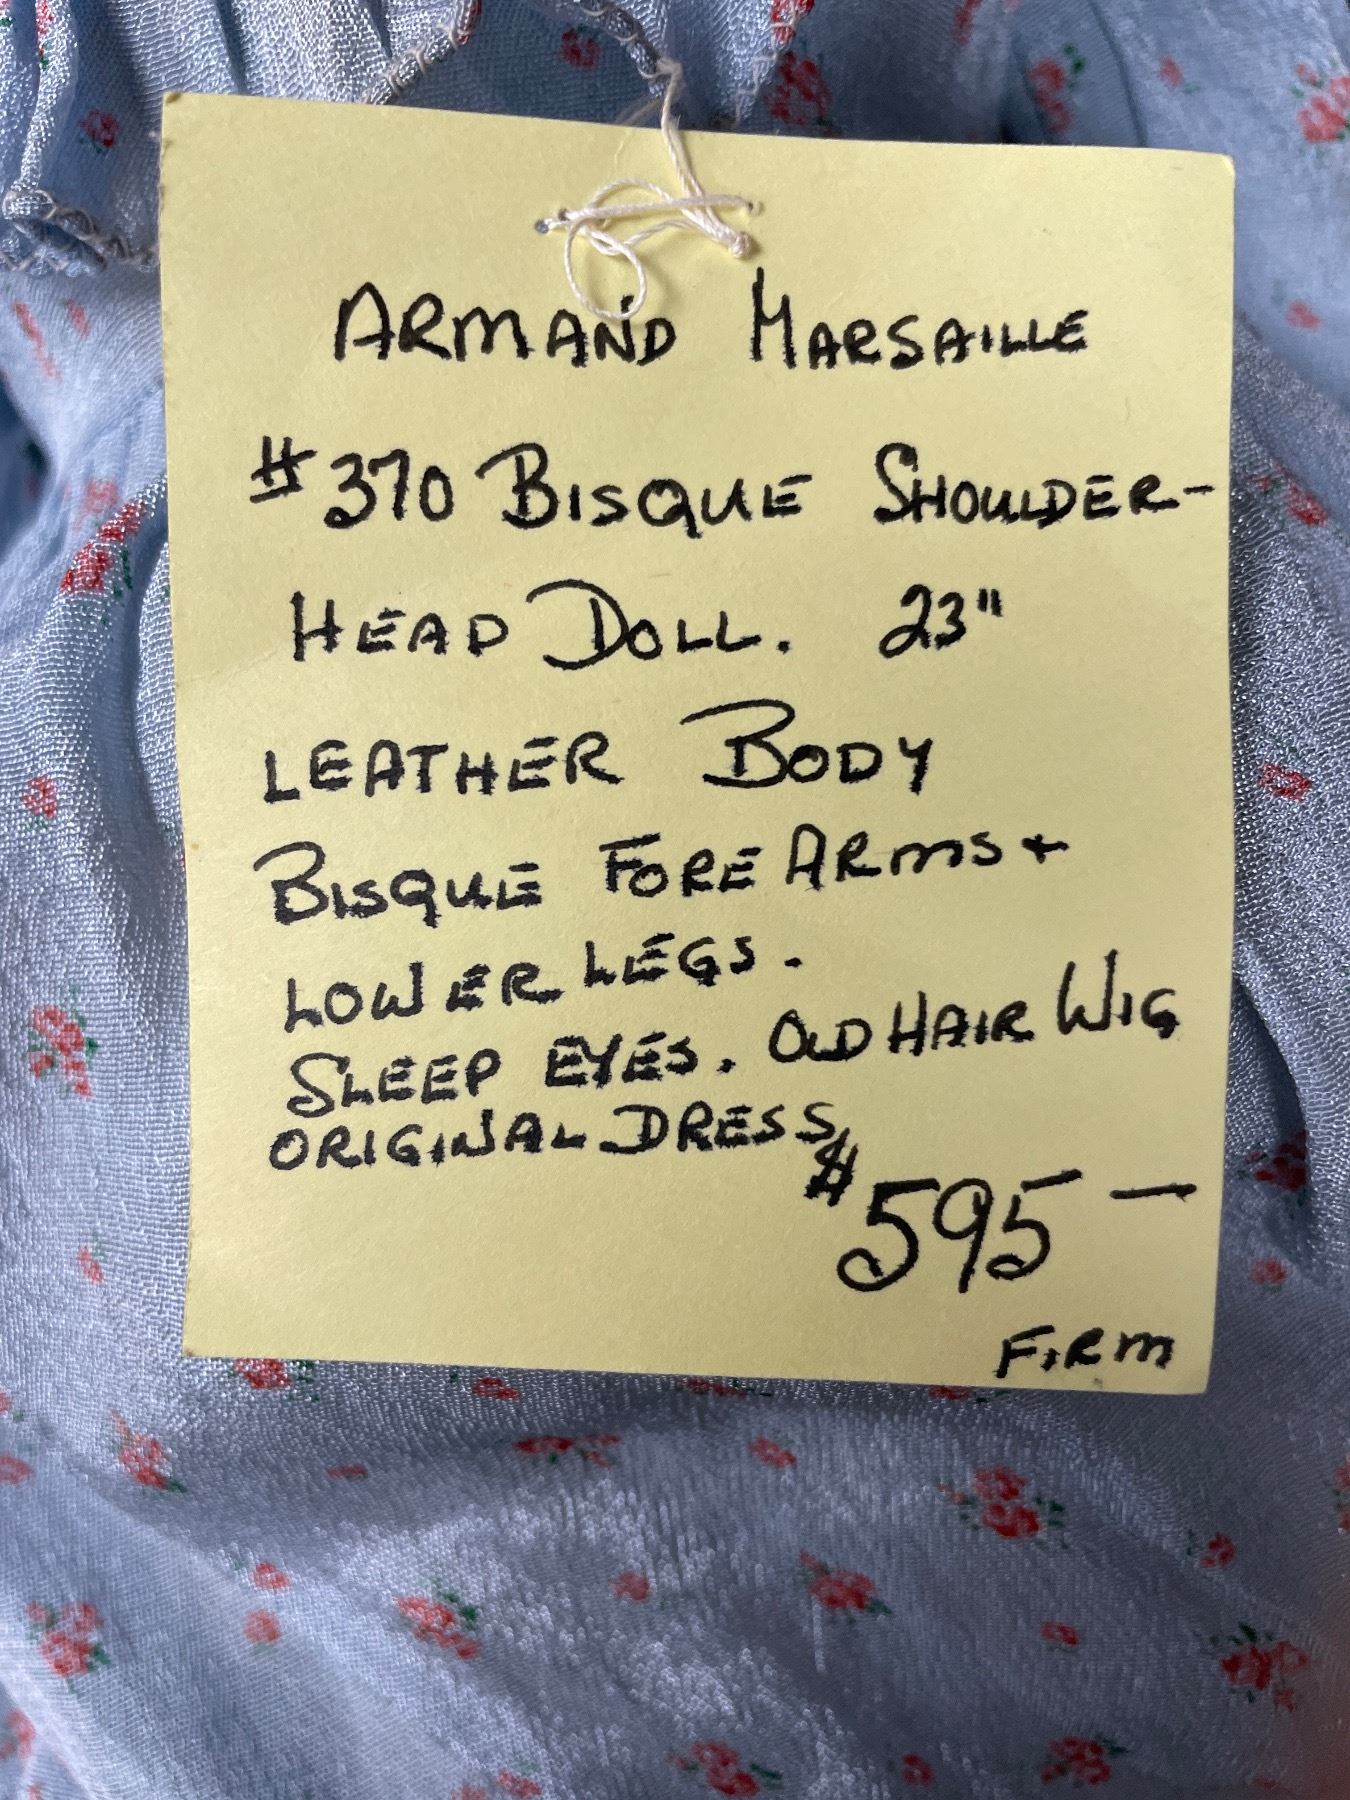 ARMAND MARSAILLE
#370 BISQUE SHOULDER-
HEAD DOLL. 23"
LEATHER BODY
BISQUE FOREARMS +
LOWER LEGS.
SLEEP EYES. OLD HAIR WIG
ORIGINAL DRESS
$595 —
FIRM